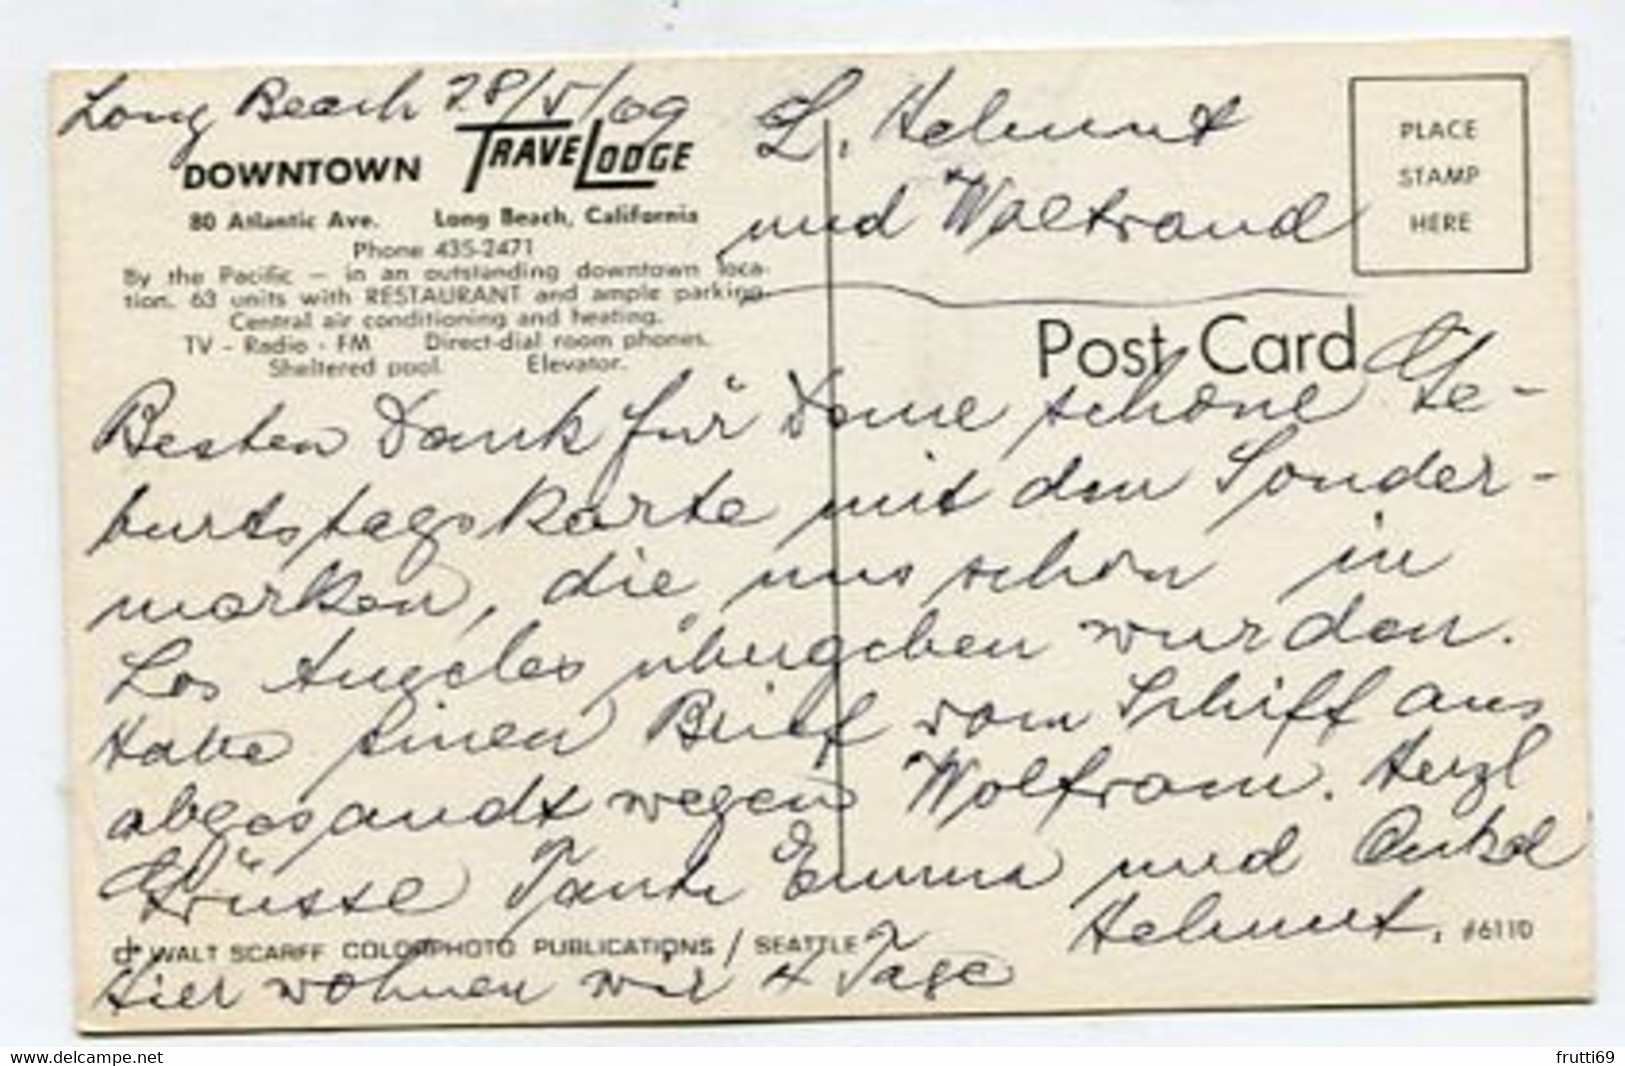 Long Beach 28/5/69
DOWNTOWN TRAVELODGE
80 Atlantic Ave. Long Beach, California
Phone 435-2471
By the Pacific — in an outstanding downtown loca-
tion. 63 units with RESTAURANT and ample parking.
Central air conditioning and heating.
TV - Radio - FM Direct-dial room phones.
Sheltered pool. Elevator.
L. Helmut
und Waltraud
PLACE
STAMP
HERE
Post Card
Besten Dank für Deine schöne Ge-
burtstagskarte mit den Sonder-
marken, die uns schon in
Los Angeles übergeben wurden.
Habe einen Brief vom Schiff aus
abgesandt wegen Wolfram. Herzl
Grüsse Tante Emma und Onkel
Helmut.
#6110
WALT SCARFF COLORPHOTO PUBLICATIONS / SEATTLE
Hier wohnen wir 4 Tage
www.delcampe.net
frutti69